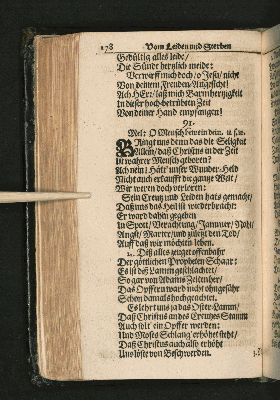 178 Vom Leiden und Sterben
Gedültig alles leide/
Die Sünde hertzlich meide:
Verwirff mich doch/ o Jesu/ nicht
Von deinem Freuden-Angesicht!
Ach HErr/ laß mich Barmhertzigkeit
In dieser hoch-betrübten Zeit
Von deiner Hand empfangen!
91.
Mel: O Mensch bewein dein. u. s. w.
BRingt uns denn das die Seligkeit
Allein/ daß Christus in der Zeit
Ein wahrer Mensch geboren?
Ach nein! Hätt' unser Wunder-Held
Nicht auch erkaufft die gantze Welt/
Wir waren doch verloren:
Sein Creutz und Leiden hats gemacht/
Daß uns das Heil ist wiederbracht:
Er ward dahin gegeben
In Spott/ Verachtung/ Jammer/ Noht/
Angst/ Marter/ und zuletzt den Tod/
Auff daß wir möchten leben.
2. Diß alles zeiget offenbahr
Der göttlichen Propheten Schaar:
Es ist das Lamm geschlachtet/
So gar von Adams Zeiten her/
Das Opffern ward nicht ohngefähr
Schon damals hochgeachtet.
Es lehrt uns ja das Oster-Lamm/
Daß Christus an des Creutzes Stamm
Auch solt' ein Opffer werden:
Und Moses Schlang' erhöhet steht/
Daß Christus auch also erhöht
Uns löste von Beschwerden.